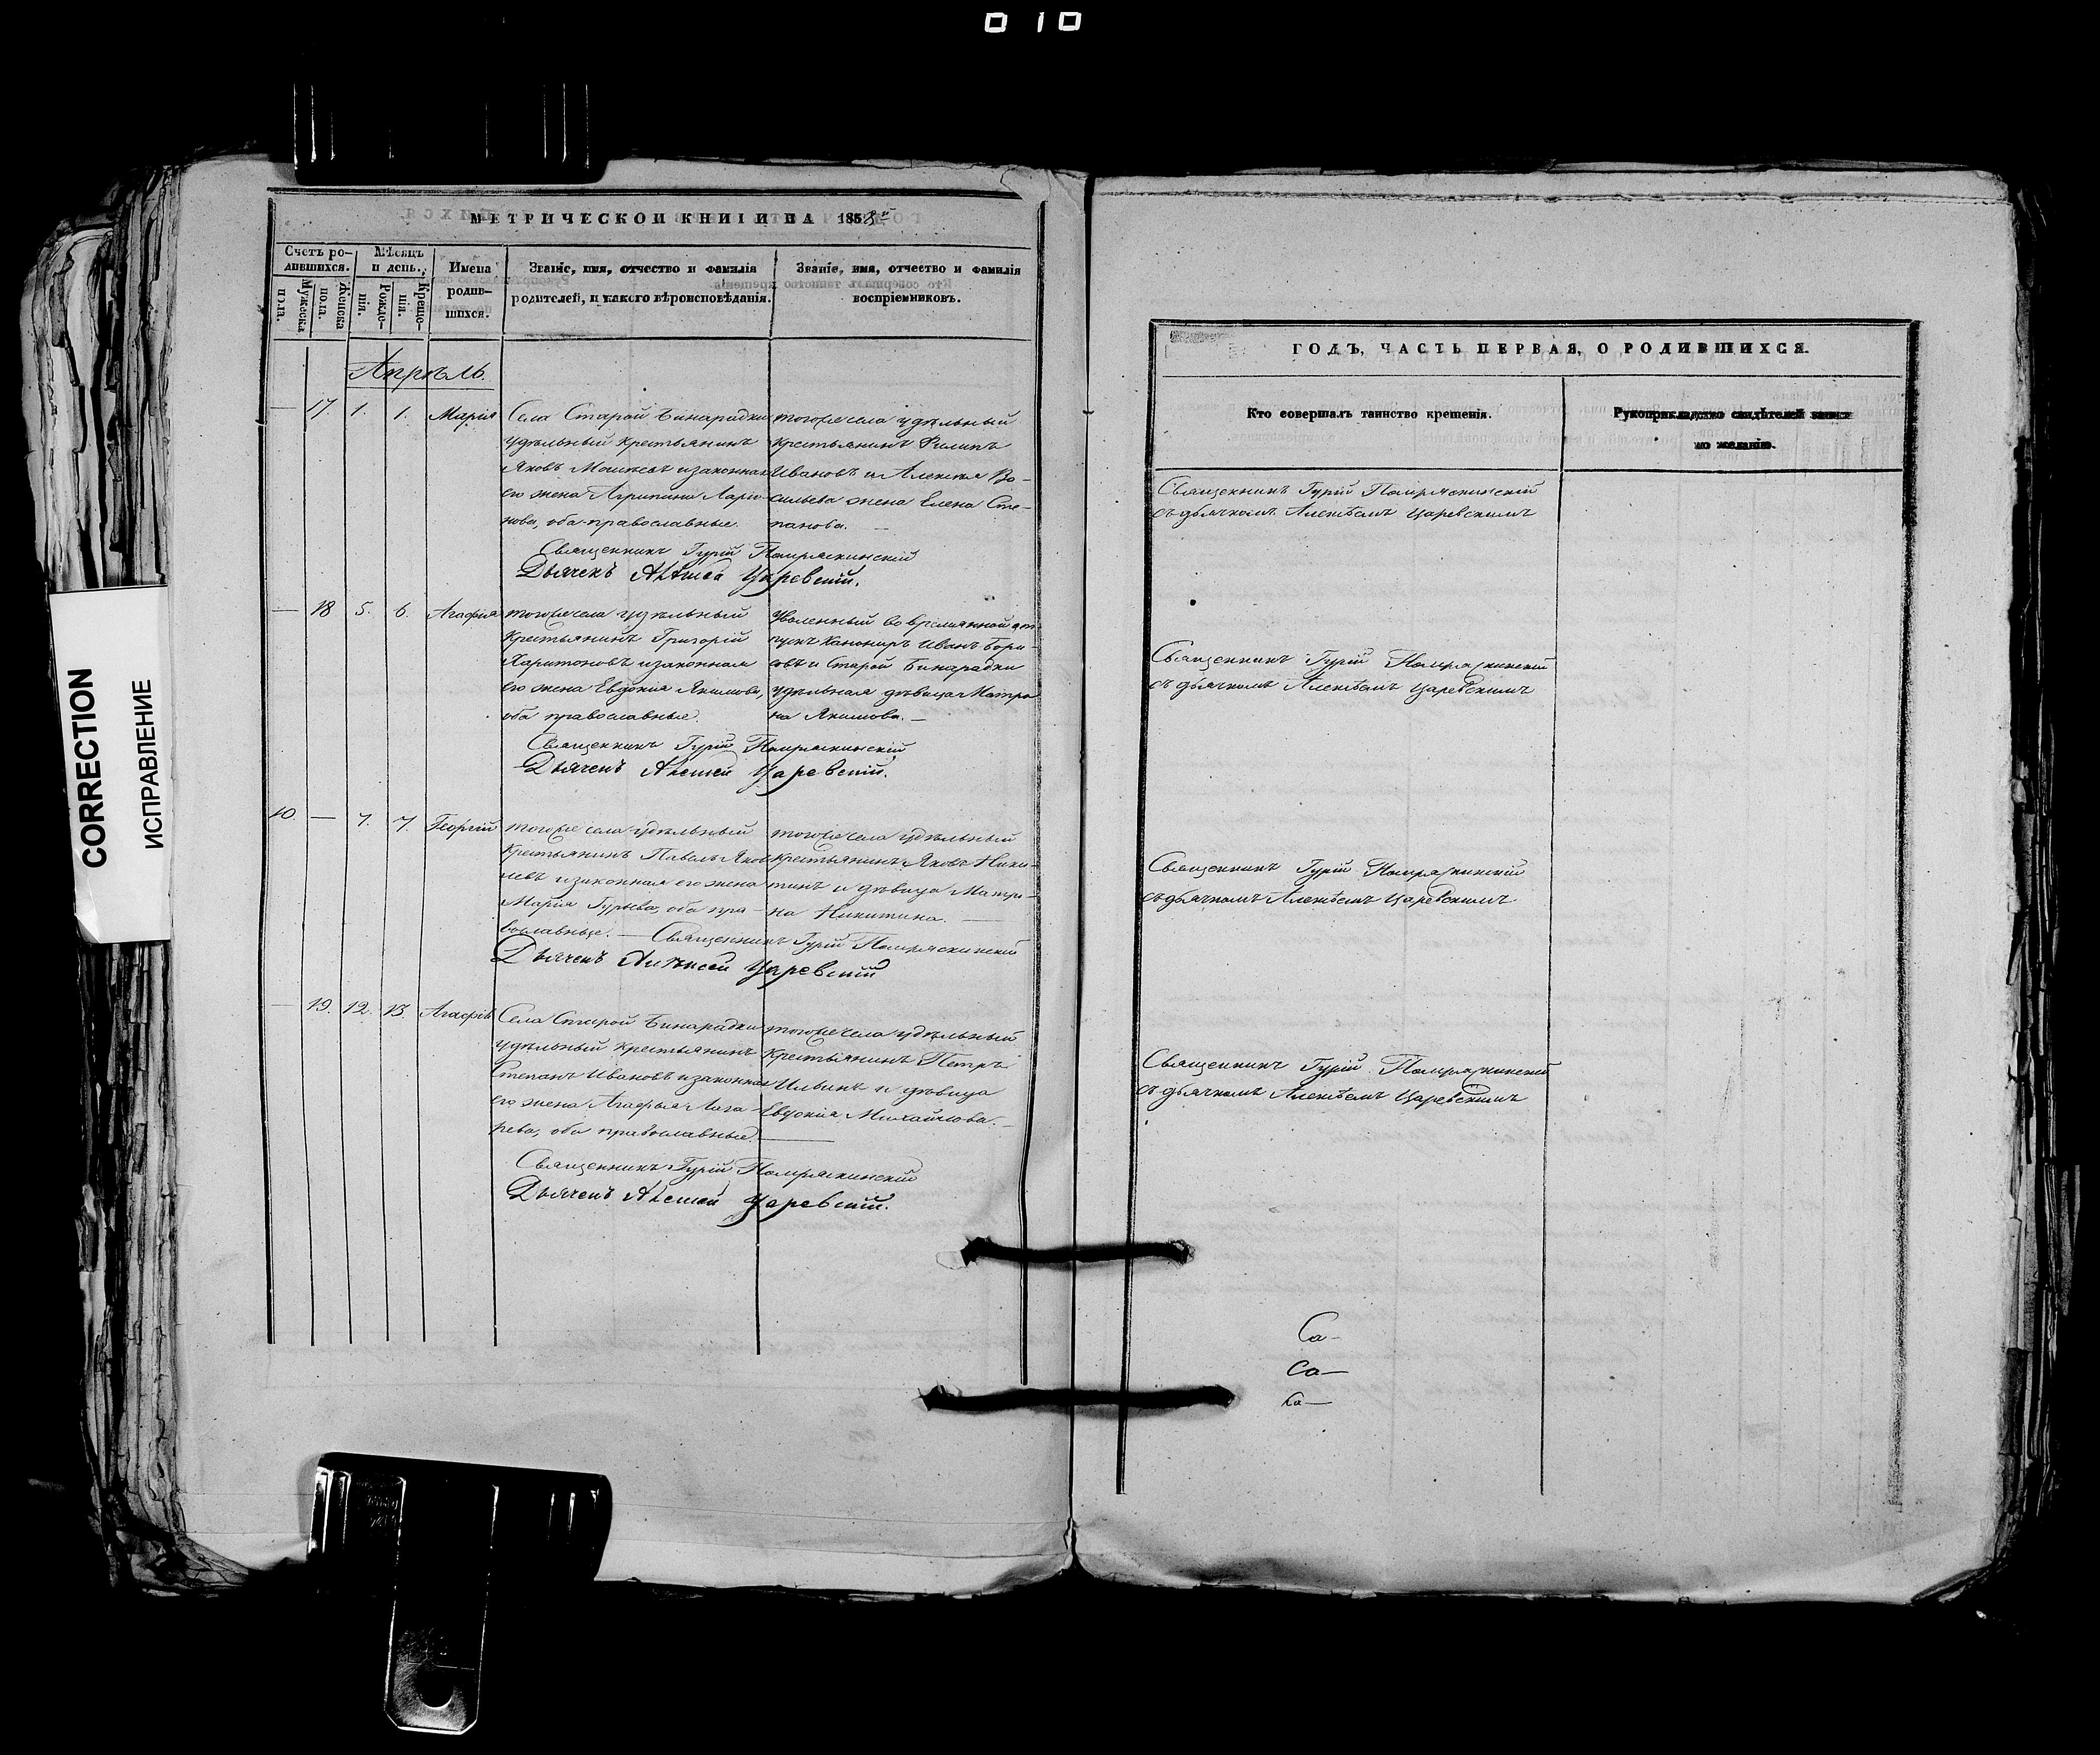 010
CORRECTION
ИСПРАВЛЕНИЕ
МЕТРИЧЕСКОЙ КНИГИ НА 1858й
Счетъ ро-
дившихся.
Мѣсяцъ
и день.
Имена
родив-
шихся.
Званіе, имя, отчество и фамилія
родителей, и какого вѣроисповѣданія.
Званіе, имя, отчество и фамилія
воспріемниковъ.
Мужеска
пола.
Женска
пола.
Рожде-
нія.
Креще-
нія.
Апрѣль.
— 17. 1. 1. Марія
Села Старой Бинарадки
удѣльный крестьянинъ
Яковъ и законная
его жена Агрипина Лари-
нова, оба православные.
тогоже села удѣльный
крестьянинъ Филипъ
Ивановъ и Алексея Ва-
сильева жена Елена Сте-
панова. —
Священникъ Гурій Помряскинскій
Дьячекъ Алексей Царевскій.
— 18 5. 6. Агафія
тогоже села удѣльный
крестьянинъ Григорій
Харитоновъ и законная
его жена Евдокія Якимова,
оба православные.
Уволенный во временной от-
пускъ Канониръ Иванъ Бори-
совъ и Старой Бинарадки
удѣльная дѣвица Матро-
на Якимова. —
Священникъ Гурій Помряскинскій
Дьячекъ Алексей Царевскій.
10 — 7. 7. Георгій
тогоже села удѣльный
крестьянинъ Павелъ Яков-
левъ и законная его жена
Марія Гурьева, оба пра-
вославные. —
тогоже села удѣльный
крестьянинъ Яковъ Ники-
тинъ и дѣвица Матре-
на Никитина. —
Священникъ Гурій Помряскинскій
Дьячекъ Алексей Царевскій
— 19. 12. 13. Агафія
Села Старой Бинарадки
удѣльный крестьянинъ
Степанъ Ивановъ и законная
его жена Агафья Лаза-
рева, оба православные.
тогоже села удѣльный
крестьянинъ Петръ
Ильинъ и дѣвица
Евдокія Михайлова. —
Священникъ Гурій Помряскинскій
Дьячекъ Алексей Царевскій.
ГОДЪ, ЧАСТЬ ПЕРВАЯ, О РОДИВШИХСЯ.
Кто совершалъ таинство крещенія.
Рукоприкладство свидѣтелей записи
по желанію.
Священникъ Гурій Помряскинскій
съ дьячкомъ Алексѣемъ Царевскимъ
Священникъ Гурій Помряскинскій
съ дьячкомъ Алексѣемъ Царевскимъ
Священникъ Гурій Помряскинскій
съ дьячкомъ Алексѣемъ Царевскимъ
Священникъ Гурій Помряскинскій
съ дьячкомъ Алексѣемъ Царевскимъ
Са-
са—
са—